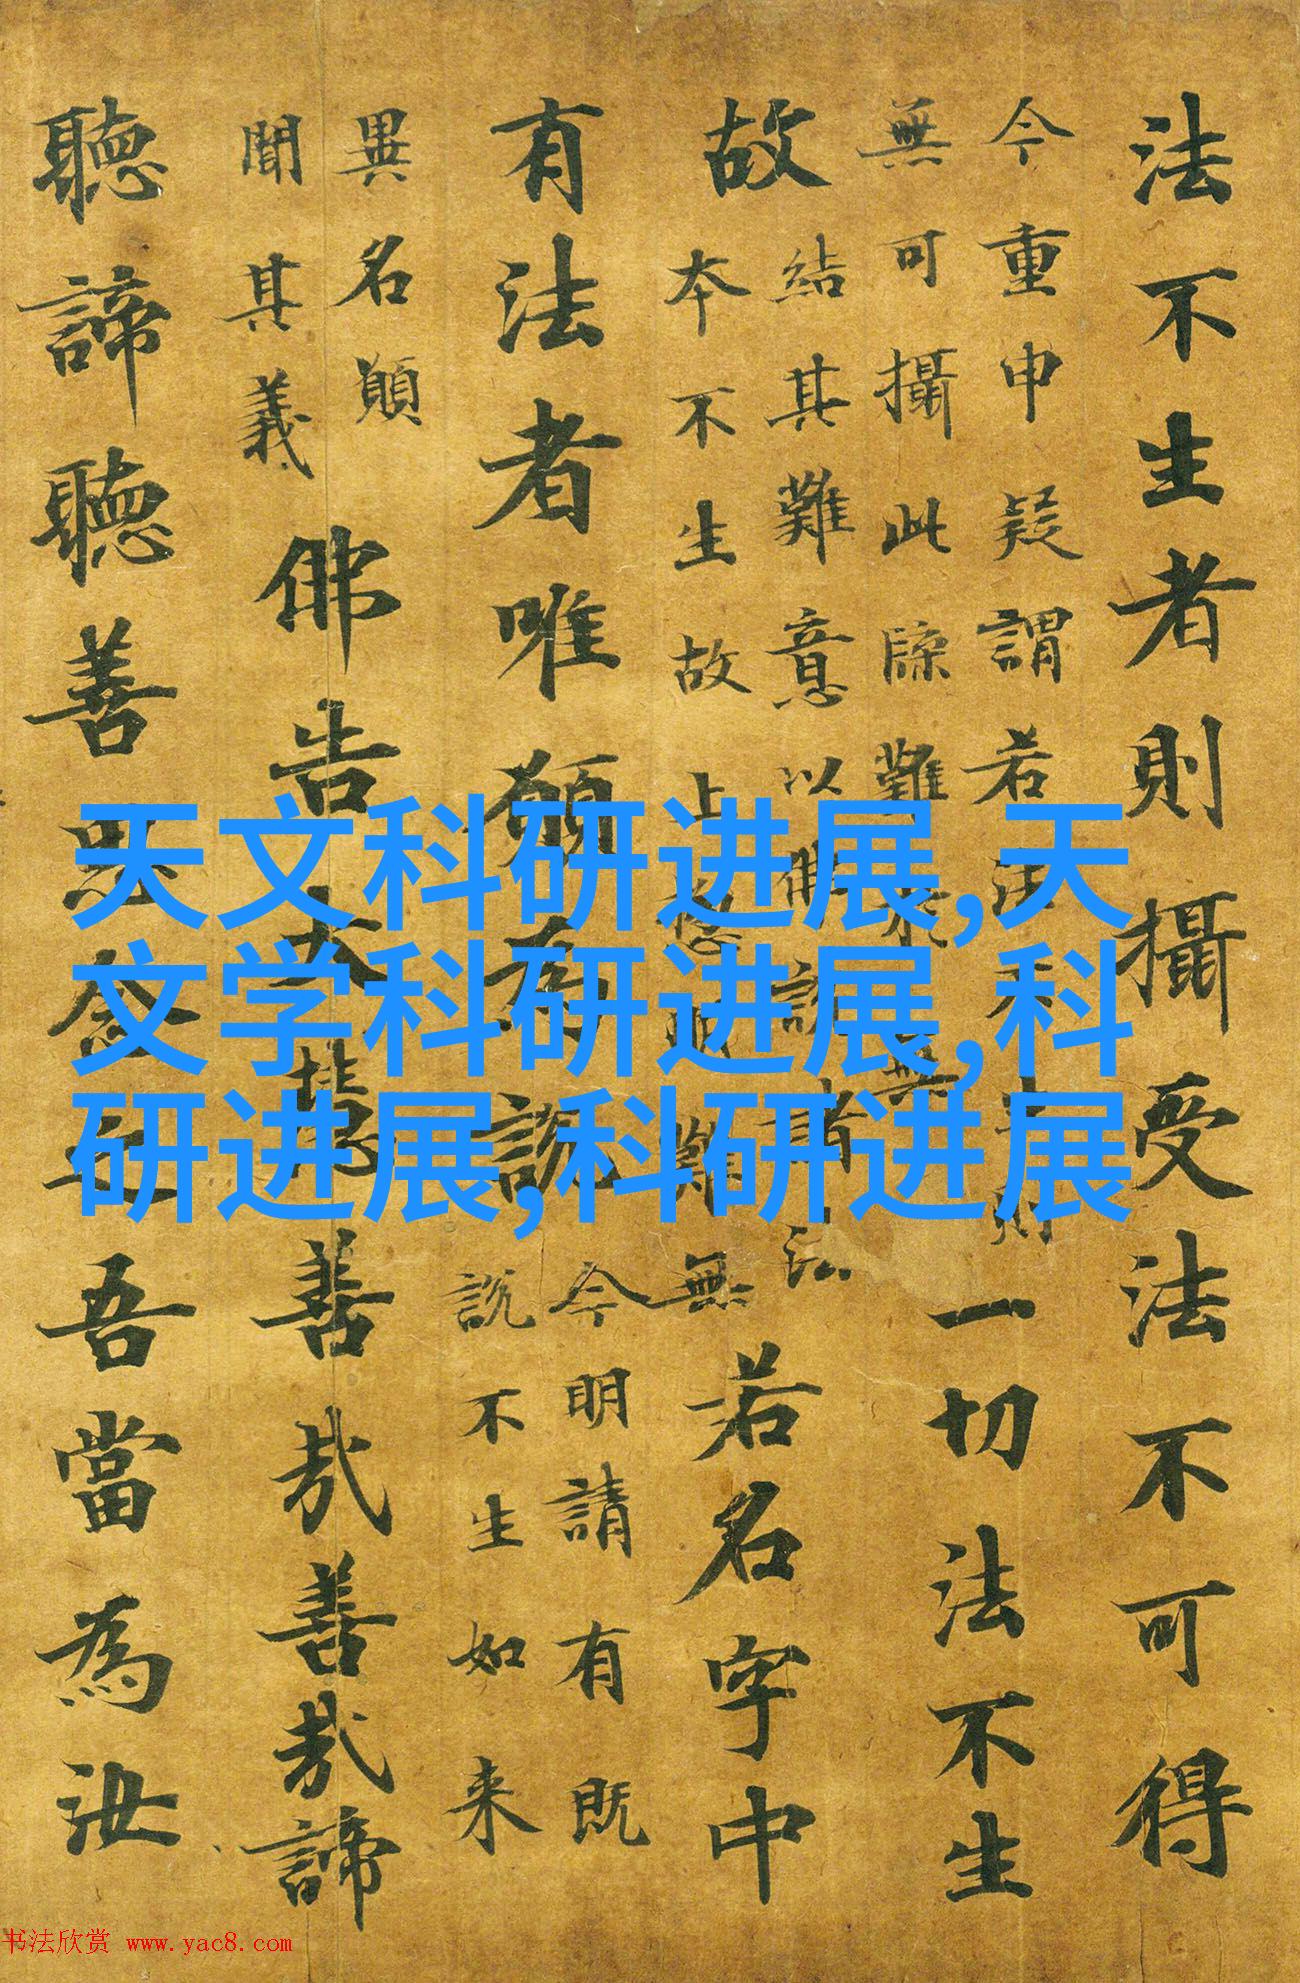 法不生者則攝受法不可得
今重申疑謂若法不生則
無可攝此牒難無
一切法不生
故
結其難意以佛說諸法
本不生故上難無
若名字中
有法者唯願為說
今明請有既
說不生如来
異名願
聞其義
佛告大慧善哉善哉諦
聽諦聽善思念之吾當為汝
天文科研进展,天
文学科研进展,科
研进展,科研进展
书法欣赏 www.yac8.com